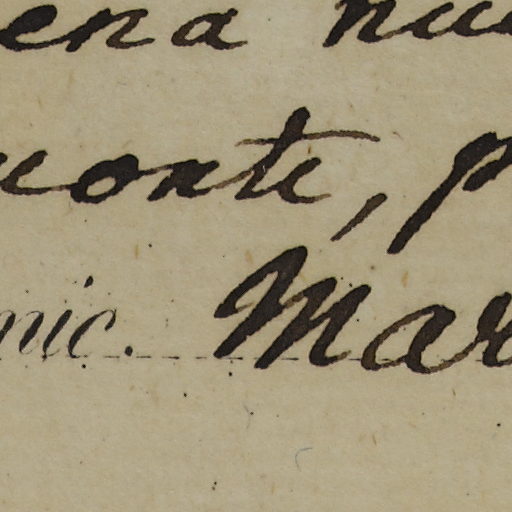 ena nu
uonti, p
nic. Mar